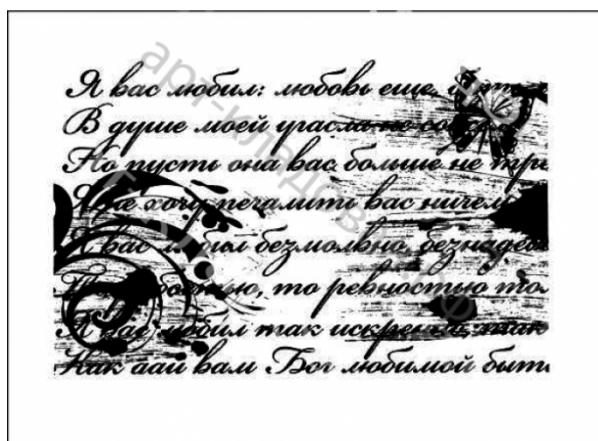 Я вас любил: любовь еще, быть
В душе моей угасла не со
Но пусть она вас больше не тре
Я не хочу печалить вас ничем
Я вас любил безмолвно, безнадеж
То робостью, то ревностью том
Я вас любил так искренно, так
Как дай вам Бог любимой быть